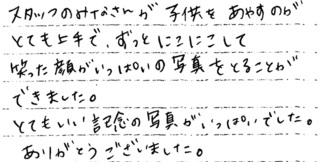 スタッフのみなさんが 子供を あやすのが
とても上手で、ずっと にこにこして
笑った顔がいっぱいの写真をとることが
できました。
とてもいい記念の写真がいっぱいでした。
ありがとうございました。